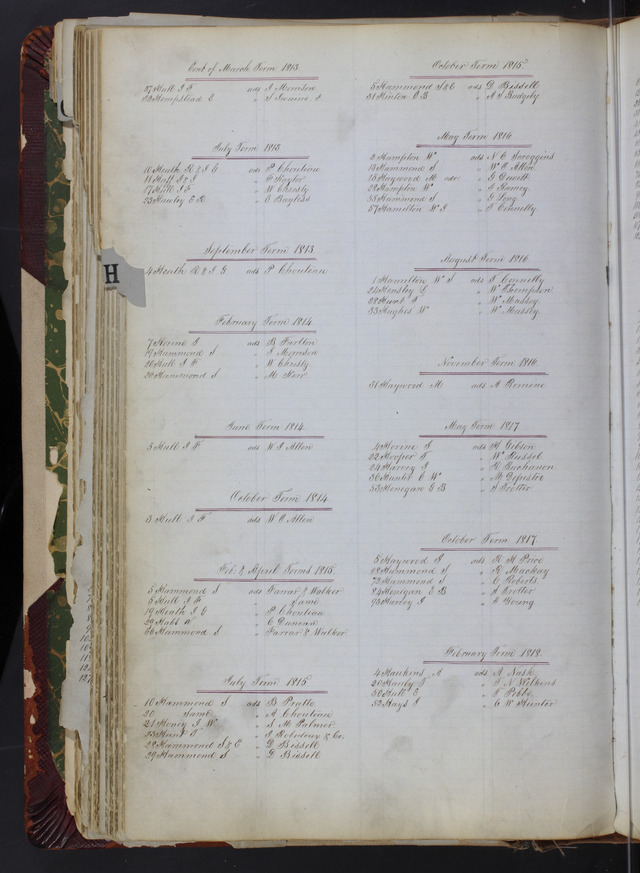 Cont of March Term 1813
37 Hull I F ads I Morrison
38 Hempstead E "
July Term 1813
10 Heath R & I G ads P Chouteau
11 Hull I F "
17 Hull I F " W Christy
23 Hawley E R " E Bayless
September Term 1813
4 Heath R & I G ads P Chouteau
H
February Term 1814
7 Horine I ads B Partton
19 Hammond S " I Morrison
26 Hull I F " W Christy
28 Hammond S " M Kerr
June Term 1814
3 Hull I F ads W I Allen
October Term 1814
3 Hull I F ads W C Allen
Feb & April Terms 1815
3 Hammond S ads Farrar & Walker
5 Hull I F " Same
19 Heath I G " P Chouteau
29 " C Duncan
60 Hammond S " Farrar & Walker
July Term 1815
10 Hammond S ads B Pratte
20 Same " A Chouteau
21 Honey I W " S M Palmer
25 Hunt T " I Robedoux & Co.
28 Hammond S & C " D Bissell
29 Hammond S " D Bissell
October Term 1815
5 Hammond S & C ads D Bissell
31 Hinton E B " A S Badgily
May Term 1816
3 Hampton W ads N C Scroggins
13 Hammond S " W C Allen
15 Haywood M adr "
32 Hampton W " Horney
38 Hammond S " G Long
57 Hamilton W I " I Connelly
August Term 1816
1 Hamilton W S ads I Connelly
24 Hensley G " W Thompson
32 " W Massey
33 Hughes W " W Massly
November Term 1816
31 Haywood M ads A Romine
May Term 1817
4 Horine I ads H Gibson
22 Hooper T " W Russel
24 Harvey I " R Buchanon
36 Hunter E W " M Depister
53 Honigan E B " I Trotter
October Term 1817
8 Haywood I ads R H Price
62 Hammond S " R Mackay
73 Hammond S " C Roberts
84 Honigan E B " I Trotter
93 Harvey I " Young
February Term 1818
4 Hawkins A ads A Nash
20 Hanly T " I N Wilkens
30 Hull E "
52 Hays I " C W Hunter